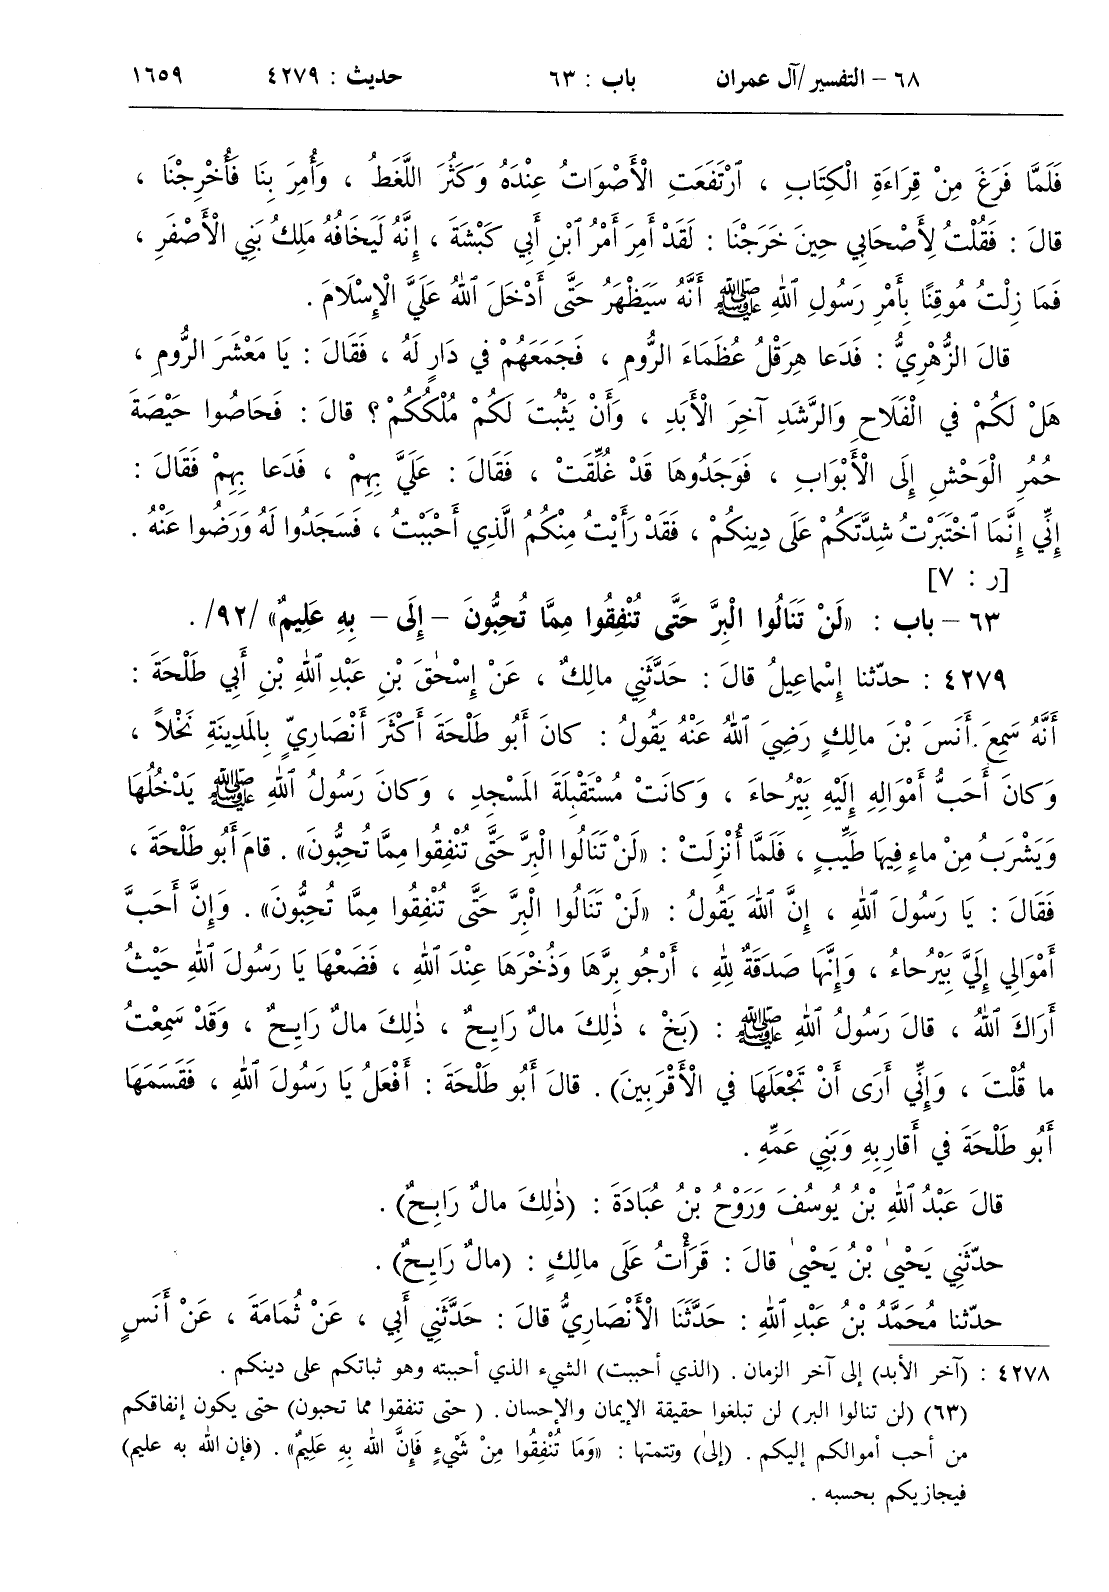 ٦٨ - التفسير/آل عمران باب : ٦٣ حديث : ٤٢٧٩ ١٦٥٩
فَلَمَّا فَرَغَ مِنْ قِرَاءَةِ الْكِتَابِ ، ٱرْتَفَعَتِ الْأَصْوَاتُ عِنْدَهُ وَكَثُرَ اللَّغَطُ ، وَأُمِرَ بِنَا فَأُخْرِجْنَا ،
قالَ : فَقُلْتُ لِأَصْحَابِي حِينَ خَرَجْنَا : لَقَدْ أَمِرَ أَمْرُ ٱبْنِ أَبِي كَبْشَةَ ، إِنَّهُ لَيَخَافُهُ مَلِكُ بَنِي الْأَصْفَرِ ،
فَمَا زِلْتُ مُوقِنًا بِأَمْرِ رَسُولِ ٱللهِ ﷺ أَنَّهُ سَيَظْهَرُ حَتَّى أَدْخَلَ ٱللهُ عَلَيَّ الْإِسْلَامَ .
قالَ الزُّهْرِيُّ : فَدَعا هِرَقْلُ عُظَمَاءَ الرُّومِ ، فَجَمَعَهُمْ فِي دَارٍ لَهُ ، فَقَالَ : يَا مَعْشَرَ الرُّومِ ،
هَلْ لَكُمْ فِي الْفَلَاحِ وَالرَّشَدِ آخِرَ الْأَبَدِ ، وَأَنْ يَثْبُتَ لَكُمْ مُلْكُكُمْ ؟ قالَ : فَحَاصُوا حَيْصَةَ
حُمُرِ الْوَحْشِ إِلَى الْأَبْوَابِ ، فَوَجَدُوهَا قَدْ غُلِّقَتْ ، فَقَالَ : عَلَيَّ بِهِمْ ، فَدَعا بِهِمْ فَقَالَ :
إِنِّي إِنَّمَا ٱخْتَبَرْتُ شِدَّتَكُمْ عَلَى دِينِكُمْ ، فَقَدْ رَأَيْتُ مِنْكُمُ الَّذِي أَحْبَبْتُ ، فَسَجَدُوا لَهُ وَرَضُوا عَنْهُ .
[ر : ٧]
٦٣ - باب : «لَنْ تَنَالُوا الْبِرَّ حَتَّى تُنْفِقُوا مِمَّا تُحِبُّونَ - إِلَى - بِهِ عَلِيمٌ» /٩٢/ .
٤٢٧٩ : حدّثنا إِسْماعِيلُ قالَ : حَدَّثَنِي مالِكٌ ، عَنْ إِسْحٰقَ بْنِ عَبْدِ ٱللهِ بْنِ أَبِي طَلْحَةَ :
أَنَّهُ سَمِعَ أَنَسَ بْنَ مالِكٍ رَضِيَ ٱللهُ عَنْهُ يَقُولُ : كانَ أَبُو طَلْحَةَ أَكْثَرَ أَنْصَارِيٍّ بِالمَدِينَةِ نَخْلاً ،
وَكانَ أَحَبُّ أَمْوَالِهِ إِلَيْهِ بَيْرُحاءَ ، وَكانَتْ مُسْتَقْبِلَةَ المَسْجِدِ ، وَكانَ رَسُولُ ٱللهِ ﷺ يَدْخُلُهَا
وَيَشْرَبُ مِنْ ماءٍ فِيهَا طَيِّبٍ ، فَلَمَّا أُنْزِلَتْ : «لَنْ تَنَالُوا الْبِرَّ حَتَّى تُنْفِقُوا مِمَّا تُحِبُّونَ» . قامَ أَبُو طَلْحَةَ ،
فَقَالَ : يَا رَسُولَ ٱللهِ ، إِنَّ ٱللهَ يَقُولُ : «لَنْ تَنَالُوا الْبِرَّ حَتَّى تُنْفِقُوا مِمَّا تُحِبُّونَ» . وَإِنَّ أَحَبَّ
أَمْوَالِي إِلَيَّ بَيْرُحاءُ ، وَإِنَّهَا صَدَقَةٌ لِلهِ ، أَرْجُو بِرَّهَا وَذُخْرَهَا عِنْدَ ٱللهِ ، فَضَعْهَا يَا رَسُولَ ٱللهِ حَيْثُ
أَرَاكَ ٱللهُ ، قالَ رَسُولُ ٱللهِ ﷺ : (بَخْ ، ذٰلِكَ مالٌ رَايِحٌ ، ذٰلِكَ مالٌ رَايِحٌ ، وَقَدْ سَمِعْتُ
ما قُلْتَ ، وَإِنِّي أَرَى أَنْ تَجْعَلَهَا فِي الْأَقْرَبِينَ) . قالَ أَبُو طَلْحَةَ : أَفْعَلُ يَا رَسُولَ ٱللهِ ، فَقَسَمَهَا
أَبُو طَلْحَةَ فِي أَقارِبِهِ وَبَنِي عَمِّهِ .
قالَ عَبْدُ ٱللهِ بْنُ يُوسُفَ وَرَوْحُ بْنُ عُبَادَةَ : (ذٰلِكَ مالٌ رَابِحٌ) .
حدّثَنِي يَحْيىٰ بْنُ يَحْيىٰ قالَ : قَرَأْتُ عَلَى مالِكٍ : (مالٌ رَايِحٌ) .
حدّثنا مُحَمَّدُ بْنُ عَبْدِ ٱللهِ : حَدَّثَنَا الْأَنْصَارِيُّ قالَ : حَدَّثَنِي أَبِي ، عَنْ ثُمَامَةَ ، عَنْ أَنَسٍ
٤٢٧٨ : (آخر الأبد) إلى آخر الزمان . (الذي أحببت) الشيء الذي أحببته وهو ثباتكم على دينكم .
(٦٣) (لن تنالوا البر) لن تبلغوا حقيقة الإيمان والإحسان . ( حتى تنفقوا مما تحبون) حتى يكون إنفاقكم
من أحب أموالكم إليكم . (إلىٰ) وتتمتها : «وَمَا تُنْفِقُوا مِنْ شَيْءٍ فَإِنَّ الله بِهِ عَلِيمٌ» . (فإن الله به عليم)
فيجازيكم بحسبه .